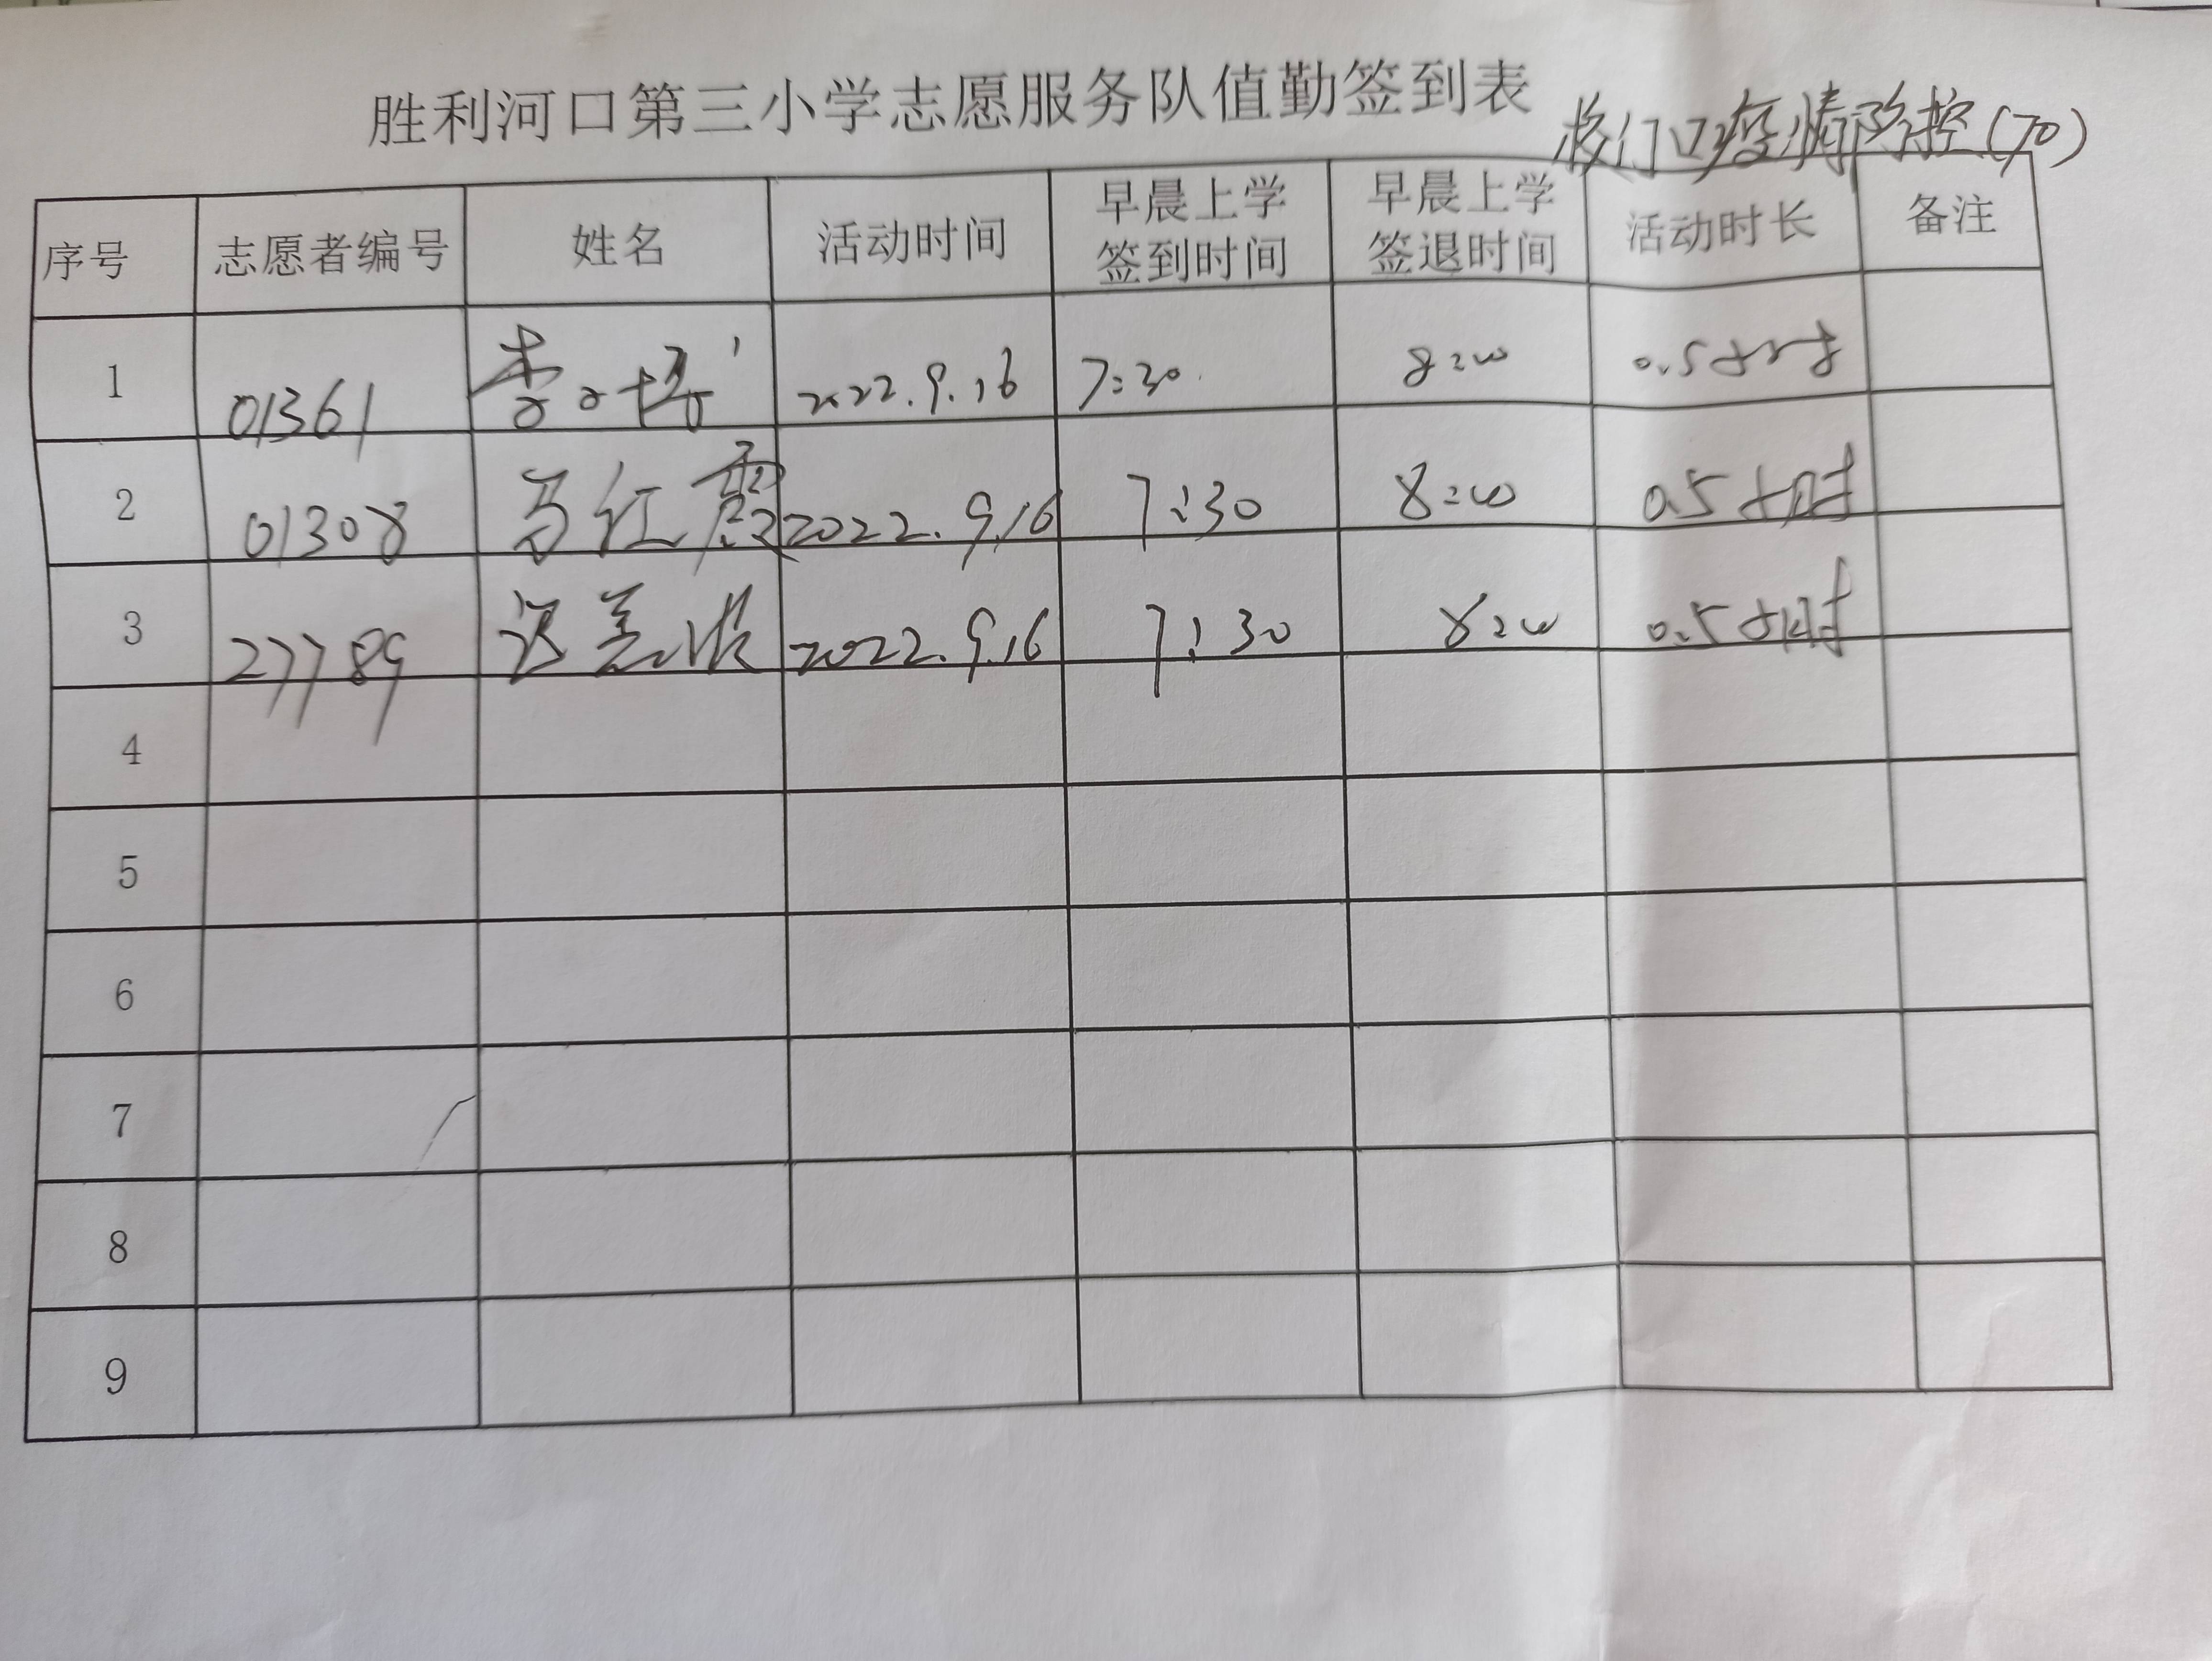 胜利河口第三小学志愿服务队值勤签到表
校门口疫情防控(70)
序号 志愿者编号 姓名 活动时间 早晨上学签到时间 早晨上学签退时间 活动时长 备注
1 01361 李 2022.9.16 7:30 8:00 0.5小时
2 01308 马红霞 2022.9.16 7:30 8:00 0.5小时
3 27789 2022.9.16 7:30 8:00 0.5小时
4
5
6
7
8
9